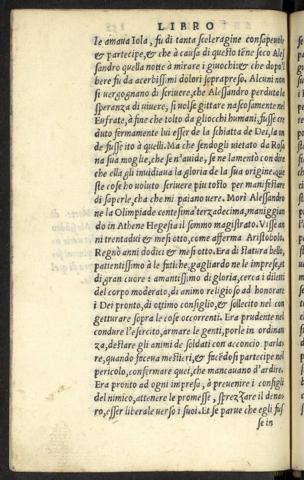 LIBRO
le amaua Iola, fu di tanta sceleragine consapeuole
& partecipe, & che à causa di questo tēne seco Ales
sandro quella notte à mirare i giuochi: & che dopo'l
bere fu da acerbissimi dolori sorapreso. Alcuni non
si uergognano di scriuere, che Alessandro perdute le
speranza di uiuere, si uolse gittare nascosamente nel
Eufrate, à fine che tolto da gliocchi humani, fusse cre
duto firmamente lui esser de la schiatta de Dei, la on
de fusse ito à quelli. Ma che sendogli uietato da Rosa
na sua moglie, che se n'auide, se ne lamentò con dire
che ella gli inuidiaua la gloria de la sua origine. que
ste cose ho uoluto scriuere piu tosto per manifestare
di saperle, cha che mi paiano uere. Morì Alessandro
ne la Olimpiade centesima terzadecima, maneggian
do in Athene Hegesia il sommo magistrato. Visse an
ni trentadui & mesi otto, come afferma Aristobolo.
Regnò anni dodici & mesi otto. Era di statura belle,
patientissimo à le fatiche, gagliardo ne le imprese, &
di gran cuore: amantissimo di gloria, circa i diletti
del corpo moderato, di animo religioso ad honorare
i Dei pronto, di ottimo consiglio, & sollecito nel con
getturare sopra le cose occorrenti. Era prudente nel
condure l'esercito, armare le genti, porle in ordinan
za, destare gli animi de soldati con acconcio parla
re, quando faceua mestieri, & facēdosi partecipe nel
pericolo, confermare quei, che mancauano d'ardire.
Era pronto ad ogni impresa, à preuenire i consigli
del nimico, attenere le promesse, sprezzare il dena
ro, esser liberale uerso i suoi. Et se parue che egli fus
se in